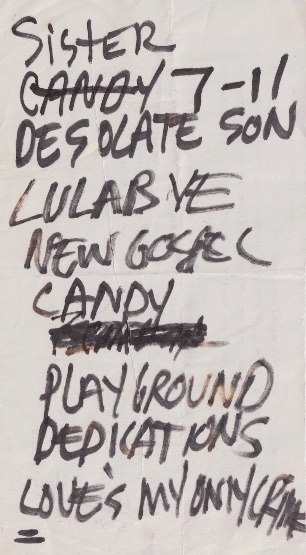 SISTER
CANDY 7-11
DESOLATE SON
LULABYE
NEW GOSPEL
CANDY
PLAYGROUND
DEDICATIONS
LOVE'S MY ONLY CRIME